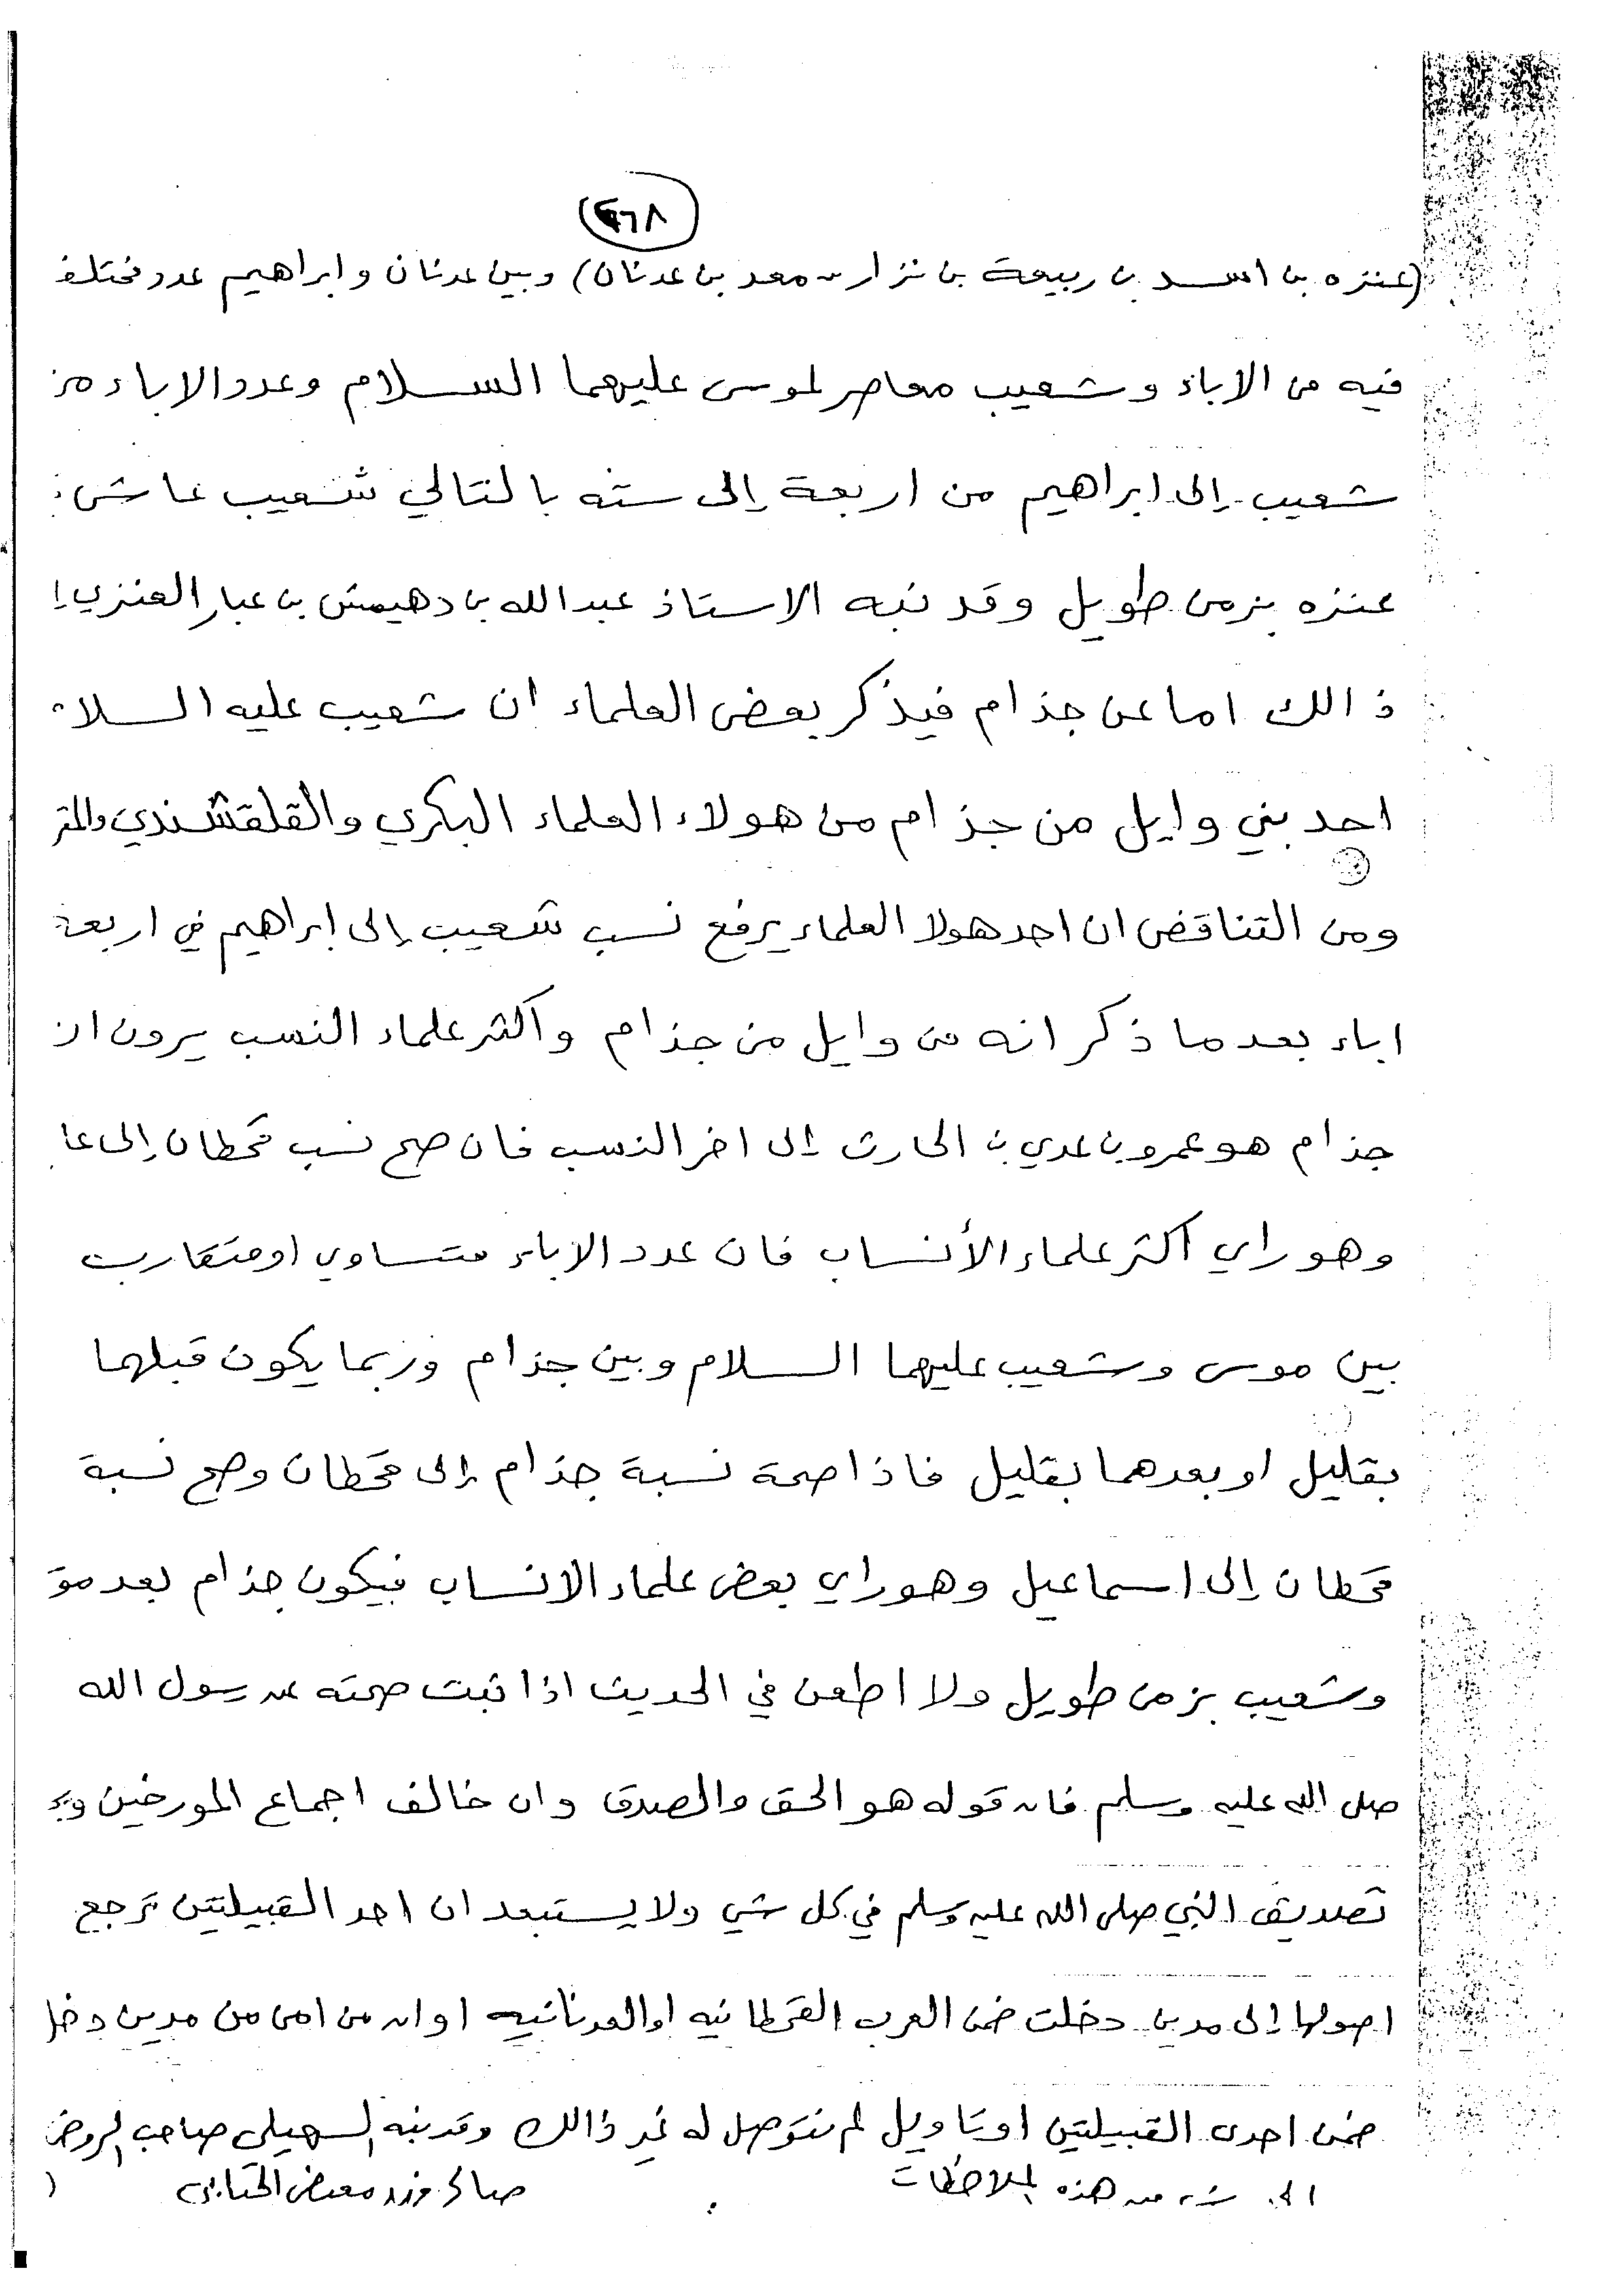 (عنزه بن اسد بن ربيعة بن نزار بن معد بن عدنان) وبين عدنان وابراهيم عدد مختلف
فيه من الاباء وشعيب معاصر لموسى عليهما السلام وعدد الاباء من
شعيب إلى ابراهيم من اربعة إلى سته بالتالي شعيب عاش
عنزه بزمن طويل وقد نبه الاستاذ عبدالله بن دهيمش بن عبار العنزي
ذالك اما عن جذام فيذكر بعض العلماء ان شعيب عليه السلا
احد بني وايل من جذام من هولاء العلماء البكري والقلقشندي
ومن التناقض ان احد هولا العلماء يرفع نسب شعيب إلى ابراهيم في اربعة
اباء بعد ما ذكر انه من وايل من جذام واكثر علماء النسب يرون ان
جذام هو عمرو بن عدي بن الحارث إلى اخر النسب فان صح نسب قحطان إلى عا
وهو راي اكثر علماء الأنساب فان عدد الاباء متساوي او متقارب
بين موسى وشعيب عليهما السلام وبين جذام وربما يكون قبلهما
بقليل او بعدهما بقليل فاذا صحة نسبة جذام إلى قحطان وصح نسبة
قحطان إلى اسماعيل وهو راي بعض علماء الانساب فيكون جذام بعد مو
وشعيب بزمن طويل ولا اطعن في الحديث اذا ثبت صحته عن رسول الله
صلى الله عليه وسلم فان قوله هو الحق والصدق وان خالف اجماع المورخين
تصديق النبي صلى الله عليه وسلم في كل شي ولا يستبعد ان احد القبيلتين ترجع
اصولها إلى مدين دخلت ضمن العرب القحطانيه او العدنانيه او ان من امن من مدين دخل
ضمن احدى القبيلتين او تاويل لم نتوصل له غير ذالك وقد نبه السهيلي صاحب الروض
الى شيء من هذه الملاحظات